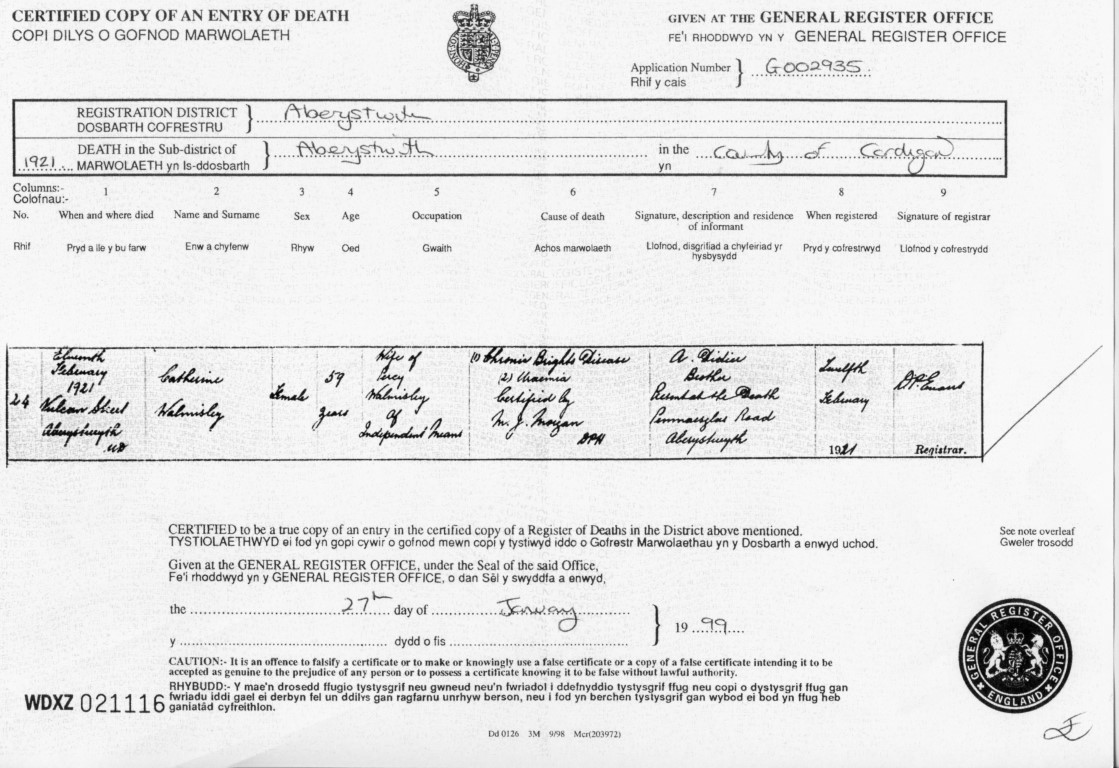 CERTIFIED COPY OF AN ENTRY OF DEATH
COPI DILYS O GOFNOD MARWOLAETH
GIVEN AT THE GENERAL REGISTER OFFICE
FE'I RHODDWYD YN Y GENERAL REGISTER OFFICE
Application Number G002935
Rhif y cais
REGISTRATION DISTRICT Aberystwith
DOSBARTH COFRESTRU
DEATH in the Sub-district of Aberystwith in the County of Cardigan
1921 MARWOLAETH yn Is-ddosbarth yn
Columns:- 1 2 3 4 5 6 7 8 9
Colofnau:-
No. When and where died Name and Surname Sex Age Occupation Cause of death Signature, description and residence of informant When registered Signature of registrar
Rhif Pryd a lle y bu farw Enw a chyfenw Rhyw Oed Gwaith Achos marwolaeth Llofnod, disgrifiad a chyfeiriad yr hysbysydd Pryd y cofrestrwyd Llofnod y cofrestrydd
24
Eleventh
February
1921
Vulcan Street
Aberystwyth
UD
Catherine
Walmisley
Female
59
years
Wife of
Percy
Walmisley
Of
Independent Means
(1) Chronic Brights Disease
(2) Uraemia
Certified by
M. J. Morgan
DPH
A. Didier
Brother
Present at the Death
Penmaesglas Road
Aberystwyth
Twelfth
February
1921
D.P. Evans
Registrar.
CERTIFIED to be a true copy of an entry in the certified copy of a Register of Deaths in the District above mentioned.
TYSTIOLAETHWYD ei fod yn gopi cywir o gofnod mewn copi y tystiwyd iddo o Gofrestr Marwolaethau yn y Dosbarth a enwyd uchod.
See note overleaf
Gweler trosodd
Given at the GENERAL REGISTER OFFICE, under the Seal of the said Office,
Fe'i rhoddwyd yn y GENERAL REGISTER OFFICE, o dan Sêl y swyddfa a enwyd,
the 27th day of January 19 99
y dydd o fis
CAUTION:- It is an offence to falsify a certificate or to make or knowingly use a false certificate or a copy of a false certificate intending it to be
accepted as genuine to the prejudice of any person or to possess a certificate knowing it to be false without lawful authority.
RHYBUDD:- Y mae'n drosedd ffugio tystysgrif neu gwneud neu'n fwriadol i ddefnyddio tystysgrif ffug neu copi o dystysgrif ffug gan
fwriadu iddi gael ei derbyn fel un ddilys gan ragfarnu unrhyw berson, neu i fod yn berchen tystysgrif gan wybod ei bod yn ffug heb
ganiatâd cyfreithlon.
WDXZ 021116
GENERAL REGISTER OFFICE
ENGLAND
Dd 0126 3M 9/98 Mcr(203972)